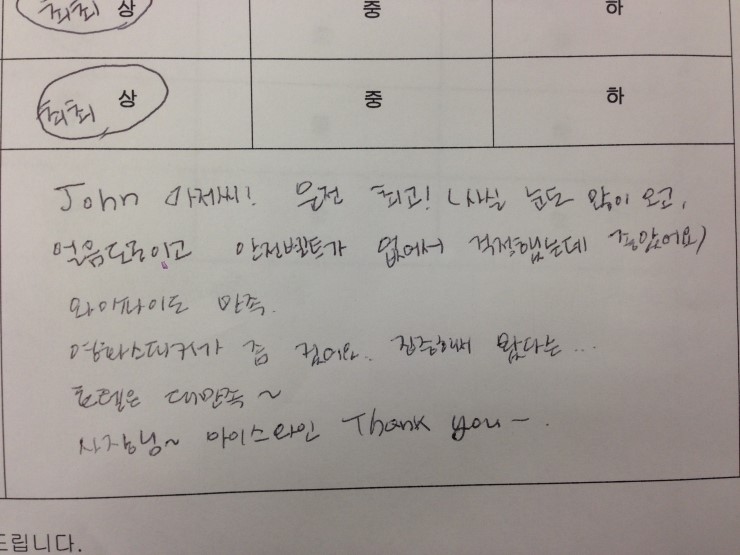 최최 상 중 하
최최 상 중 하
John 아저씨! 운전 최고! (사실 눈도 많이 오고,
얼음도로이고 안전벨트가 없어서 걱정했는데 좋았어요)
와이파이도 만족.
영화스피커가 좀 컸어요. 집중해서 봤다는...
호텔은 대만족~
사장님~ 아이스와인 Thank you-.
드립니다.